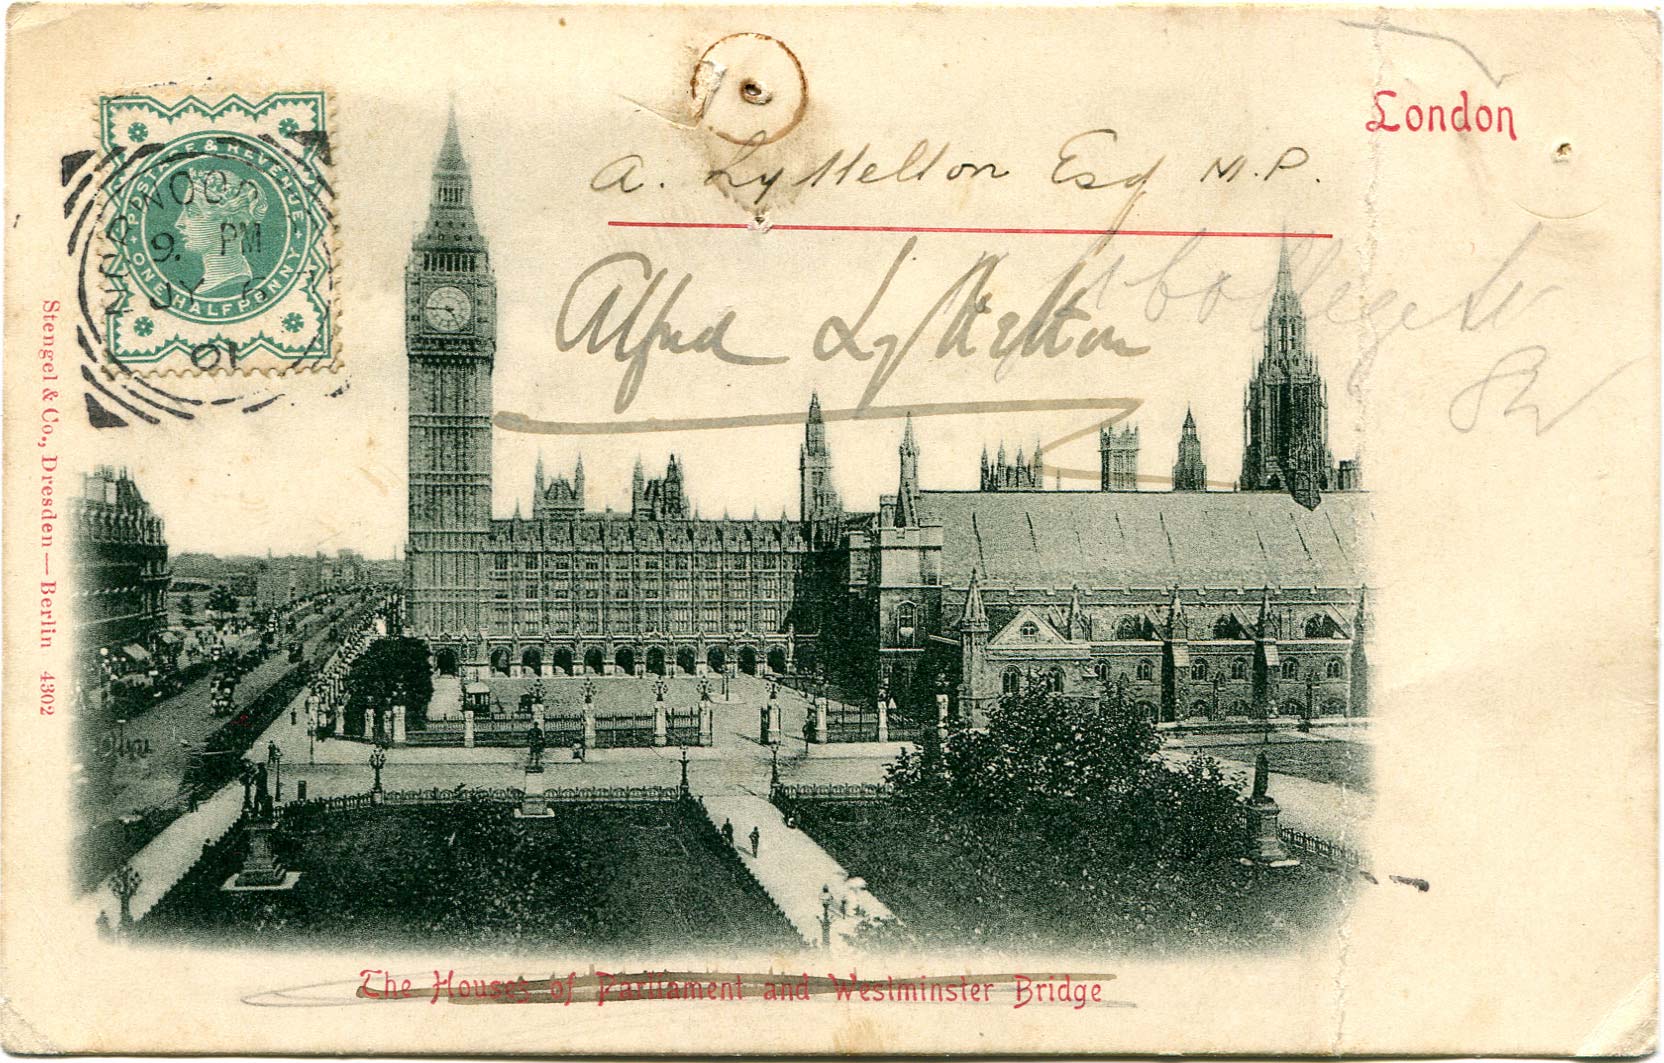 London
A. Lyttelton Esq M.P.
Alfred Lyttelton
College St
SW
POSTAGE & REVENUE
ONE HALFPENNY
NORWOOD
9. PM
JY
01
Stengel & Co., Dresden—Berlin 4302
The Houses of Parliament and Westminster Bridge